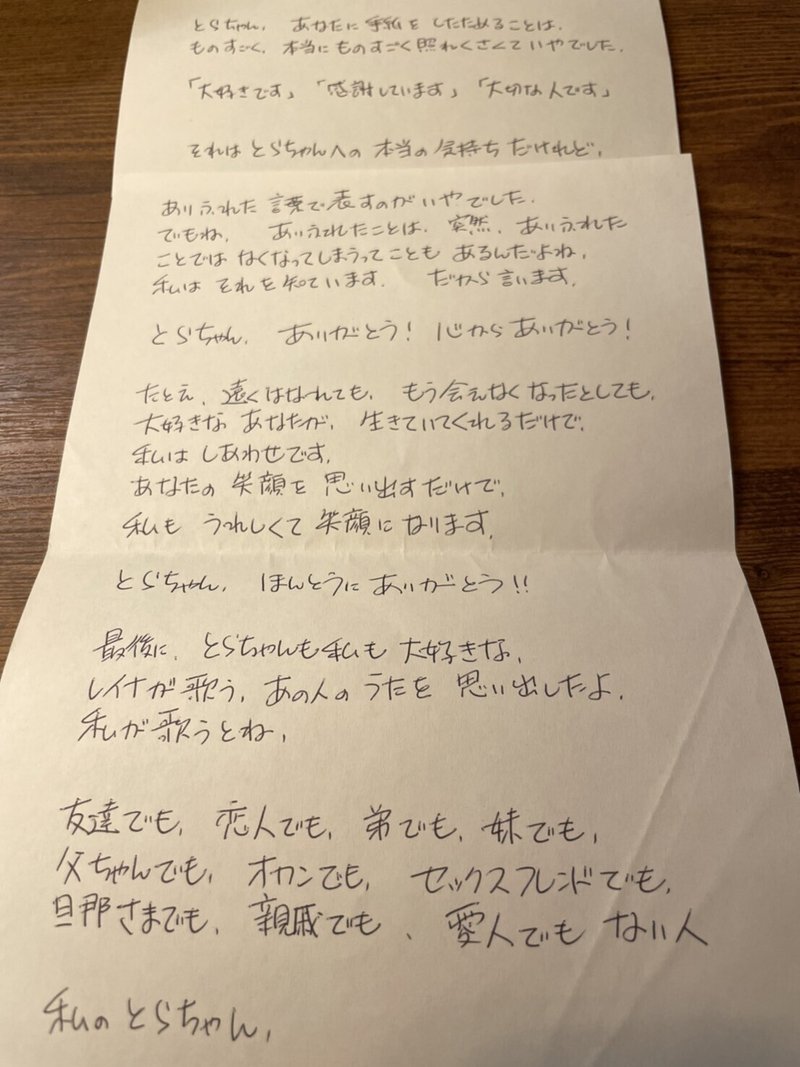 とらちゃん、あなたに手紙をしたためることは、
ものすごく、本当にものすごく照れくさくていやでした。
「大好きです」「感謝しています」「大切な人です」
それはとらちゃんへの本当の気持ちだけれど、
ありふれた言葉で表すのがいやでした。
でもね、ありふれたことは、突然、ありふれた
ことではなくなってしまうってこともあるんだよね。
私はそれを知ています。だから言います。
とらちゃん、ありがとう!心からありがとう!
たとえ、遠くはなれても、もう会えなくなったとしても、
大好きなあなたが、生きていてくれるだけで、
私はしあわせです。
あなたの笑顔を思い出すだけで、
私もうれしくて笑顔になります。
とらちゃん、ほんとうにありがとう!!
最後に、とらちゃんも私も大好きな、
レイナが歌う、あの人のうたを思い出したよ。
私が歌うとね、
友達でも、恋人でも、弟でも、妹でも、
父ちゃんでも、オカンでも、セックスフレンドでも、
旦那さまでも、親戚でも、愛人でもない人
私のとらちゃん、